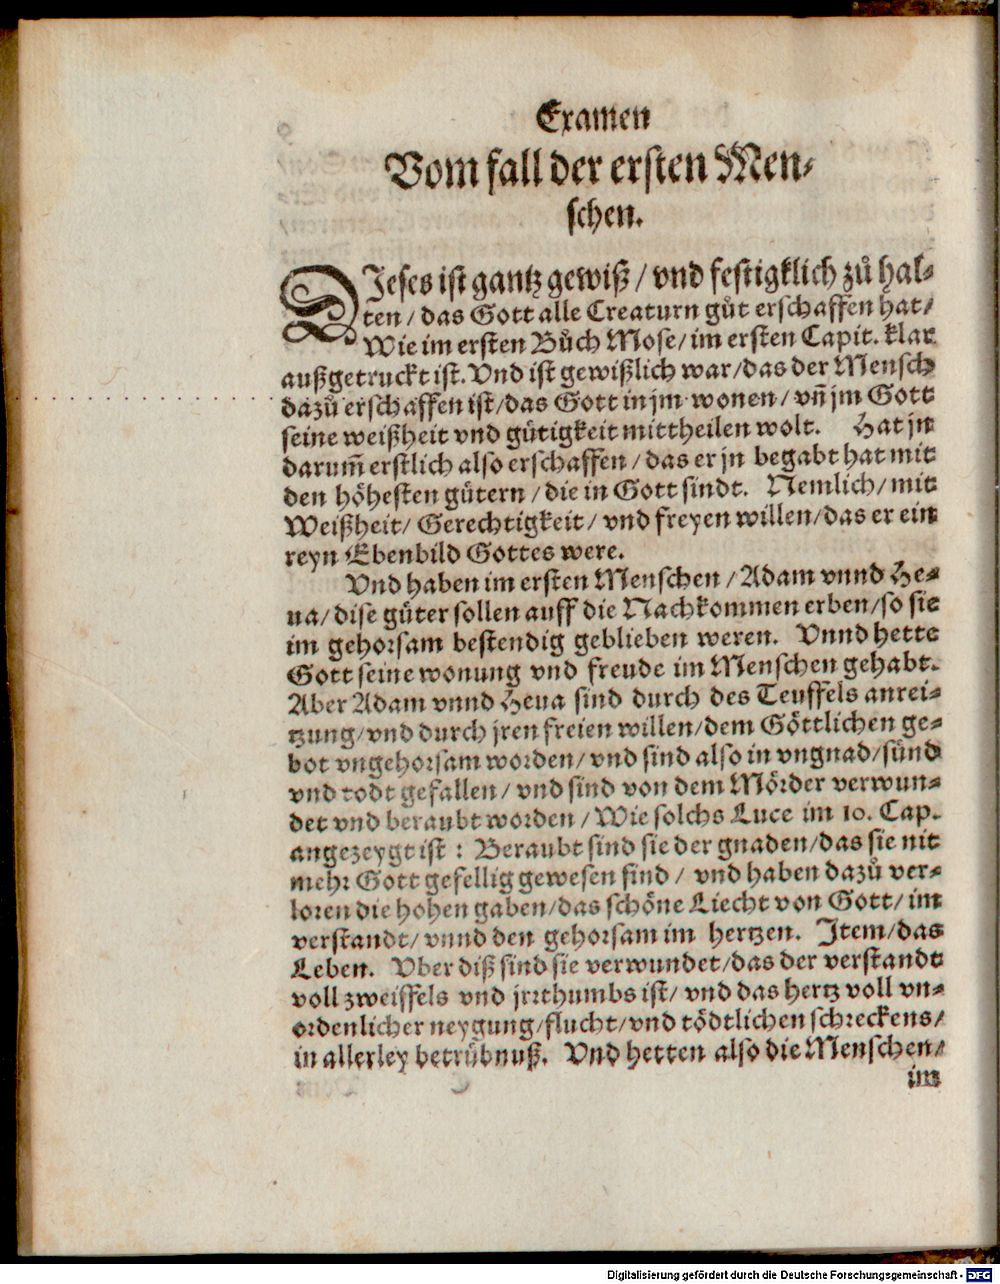 Examen
Vom fall der ersten Men⸗
schen.
DJeses ist gantz gewiß / vnd festigklich zů hal⸗
ten / das Gott alle Creaturn gůt erschaffen hat /
Wie im ersten Bůch Mose / im ersten Capit. klar
außgetruckt ist. Vnd ist gewißlich war / das der Mensch
dazů erschaffen ist / das Gott in jm wonen / vñ jm Gott
seine weißheit vnd gütigkeit mittheilen wolt. Hat jn
darum̃ erstlich also erschaffen / das er jn begabt hat mit
den höhesten gütern / die in Gott sindt. Nemlich / mit
Weißheit / Gerechtigkeit / vnd freyen willen / das er ein
reyn Ebenbild Gottes were.
Vnd haben im ersten Menschen / Adam vnnd He⸗
ua / dise güter sollen auff die Nachkommen erben / so sie
im gehorsam bestendig geblieben weren. Vnnd hette
Gott seine wonung vnd freude im Menschen gehabt.
Aber Adam vnnd Heua sind durch des Teuffels anrei⸗
tzung / vnd durch jren freien willen / dem Göttlichen ge⸗
bot vngehorsam worden / vnd sind also in vngnad / sünd
vnd todt gefallen / vnd sind von dem Mörder verwun⸗
det vnd beraubt worden / Wie solchs Luce im 10. Cap.
angezeygt ist : Beraubt sind sie der gnaden / das sie nit
mehr Gott gefellig gewesen sind / vnd haben dazů ver⸗
loren die hohen gaben / das schöne Liecht von Gott / im
verstandt / vnnd den gehorsam im hertzen. Jtem / das
Leben. Vber diß sind sie verwundet / das der verstandt
voll zweiffels vnd jrrthumbs ist / vnd das hertz voll vn⸗
ordenlicher neygung / flucht / vnd tödtlichen schreckens /
in allerley betrübnuß. Vnd hetten also die Menschen /
im
Digitalisierung gefördert durch die Deutsche Forschungsgemeinschaft - DFG